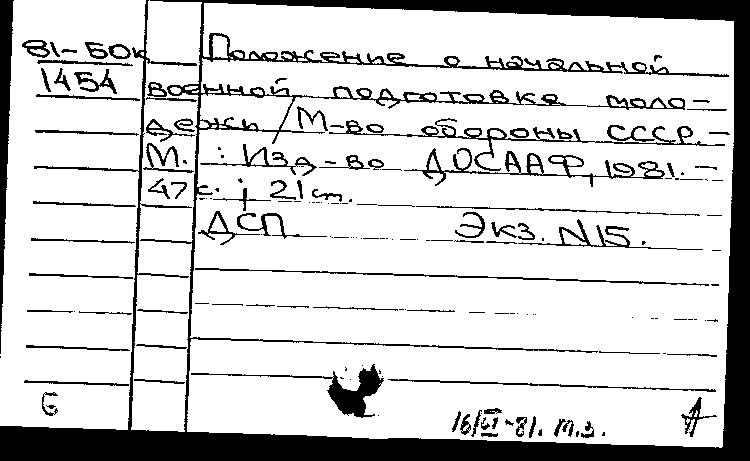 81-50к Положение о начальной
1454 военной подготовке моло-
дежи / М-во обороны СССР. -
М. : Изд-во ДОСААФ, 1981. -
47 с. ; 21 cm.
ДСП. Экз. N15.
6 16/VI-81. м.з.